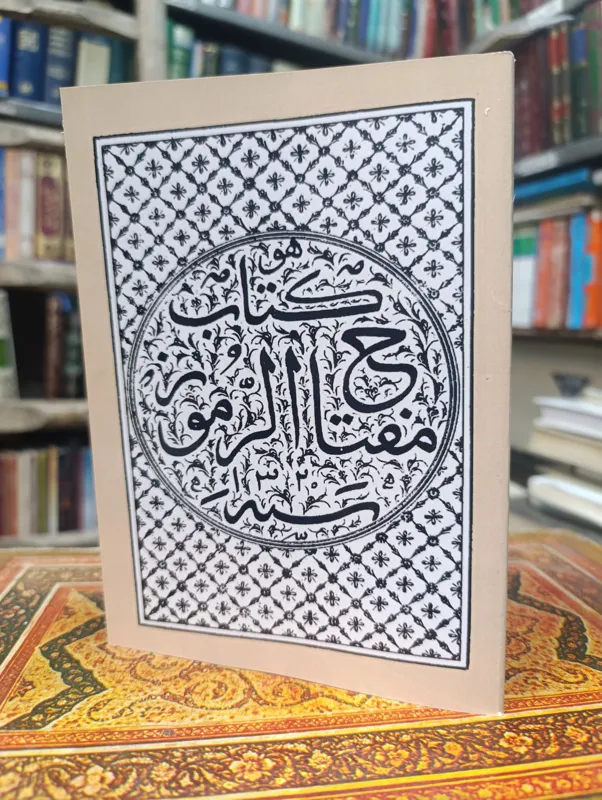 هو
كتاب
مفتاح
الرُّموز
سنه ١٣٢٠